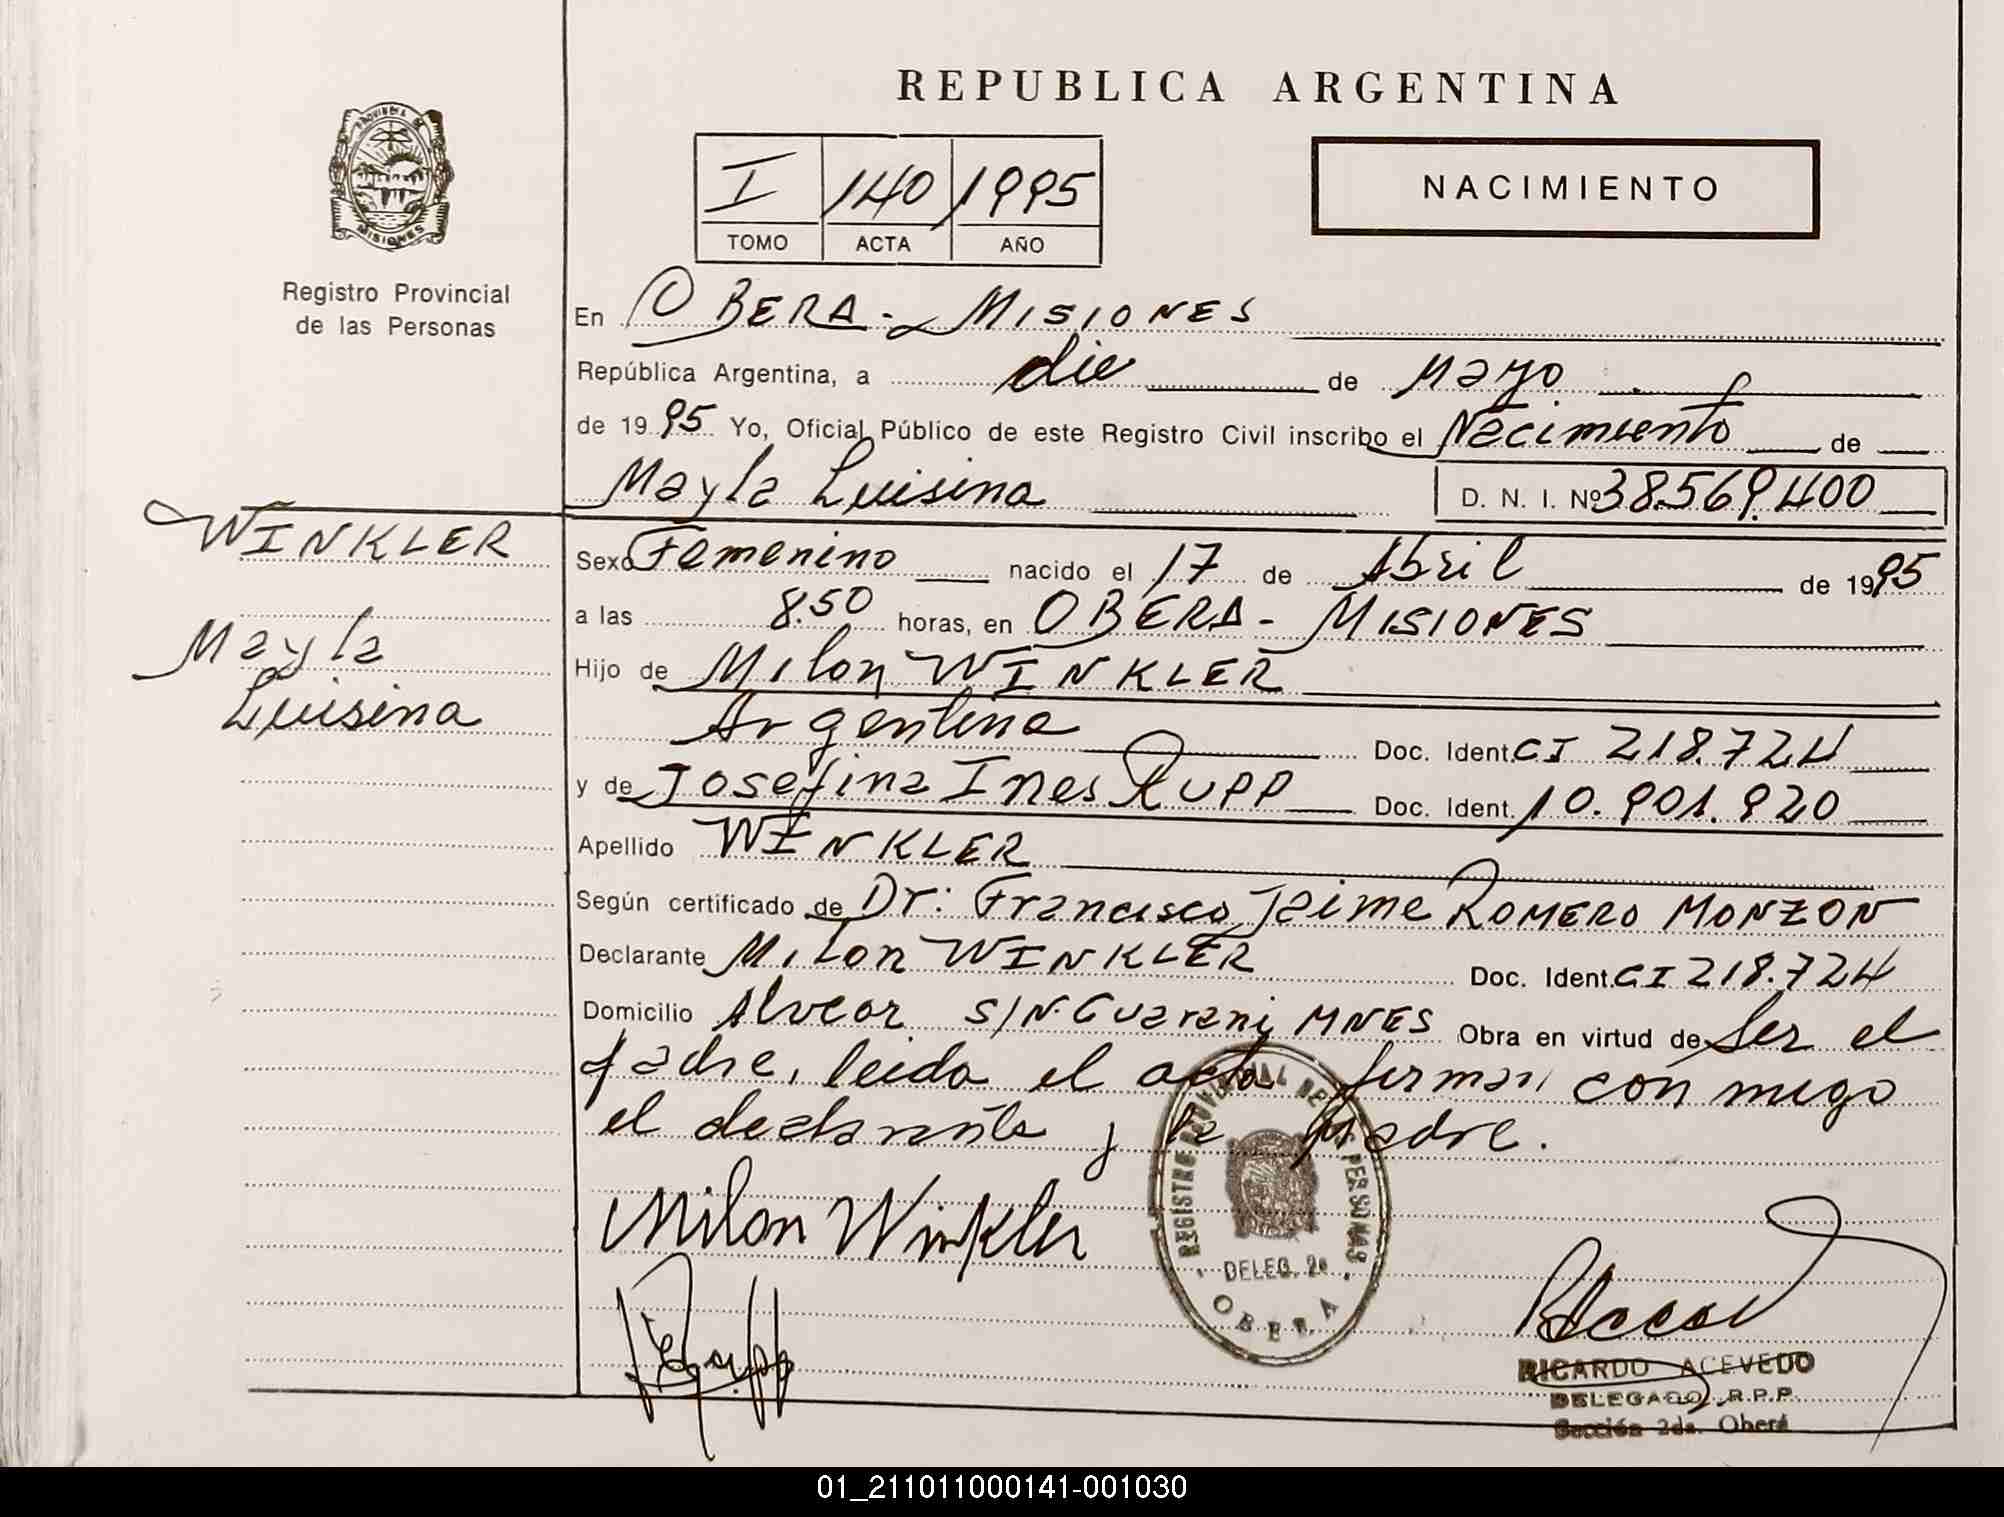 REPUBLICA ARGENTINA
PROVINCIA DE
MISIONES
Registro Provincial
de las Personas
I 140 1995
TOMO ACTA AÑO
NACIMIENTO
En OBERA - MISIONES
República Argentina, a die de Mayo
de 1995 Yo, Oficial Público de este Registro Civil inscribo el Nacimiento de
Mayla Luisina D. N. I. Nº 38.569.400
WINKLER
Mayla
Luisina
Sexo Femenino nacido el 17 de Abril de 1995
a las 8.50 horas, en OBERA - MISIONES
Hijo de Milon WINKLER
Argentina Doc. Ident. CI 218.724
y de Josefina Ines RUPP Doc. Ident. 10.901.920
Apellido WINKLER
Según certificado de Dr: Francisco Jaime ROMERO MONZON
Declarante Milon WINKLER Doc. Ident. CI 218.724
Domicilio Alvear S/N. Guarani MNES Obra en virtud de Ser el
padre, leida el acta firman con migo
el declarante y la Madre.
Milon Winkler
REGISTRO PROVINCIAL DE LAS PERSONAS
DELEG. 2a
OBERA
RICARDO ACEVEDO
DELEGADO R.P.P.
Sección 2da. Oberá
01_211011000141-001030